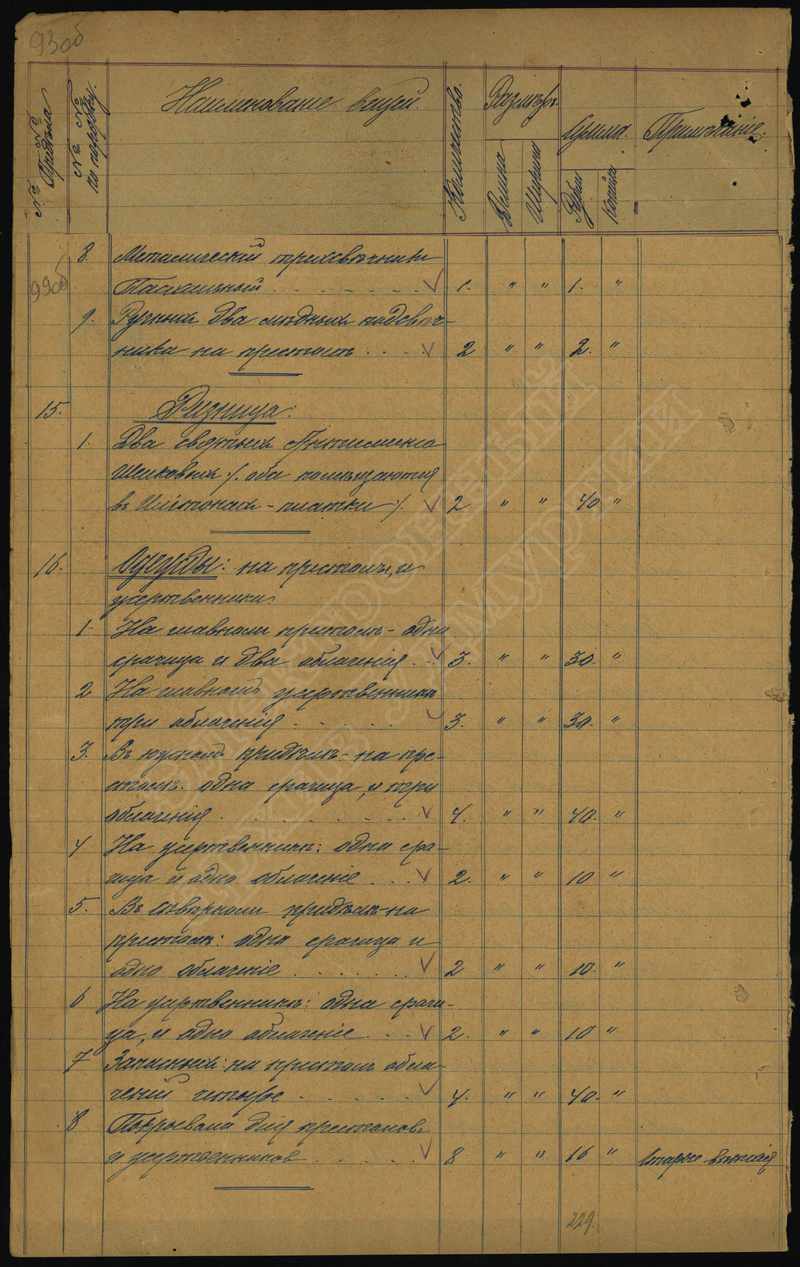 93об
№ № Отдела
№ № по порядку.
Наименованіе вещей.
Количество.
Размѣръ.
Длина
Ширина
Сумма.
Рубли
Копѣйки
Примѣчаніе.
99об
8. Металическій трихсвѣчникъ
Пасхальный . . . . . . . 1. " " 1. "
9. Ручныя два мѣдныхъ подсвѣч-
ника на престолъ . . . . 2 " " 2. "
15. Ризница:
1. Два святыхъ Антиминса
Шелковыя ·/. оба помѣщаются
въ Илитонахъ - платки ·/. 2 " " 40 "
16. Одежды: на престолы, и
жертвенники.
1. На главномъ престолѣ - одна
срачица и два облаченія . . 3. " " 30. "
2 На главномъ жертвенникѣ
три облаченія . . . . . . 3. " " 30. "
3. Въ южномъ придѣлѣ - на пре-
столѣ: одна срачица, и три
облаченія . . . . . . . . 4. " " 40. "
4 На жертвенникѣ: одна сра-
чица и одно облаченіе . . . 2. " " 10 "
5. Въ сѣверномъ придѣлѣ - на
престолѣ: одна срачица и
одно облаченіе . . . . . . 2 " " 10. "
6 На жертвенникѣ: одна срачи-
ца, и одно облаченіе . . . 2. " " 10 "
7 Запасныхъ: на престолъ обла-
ченій четыре . . . . . . 4. " " 40. "
8 Покрывала для престоловъ
и жертвенниковъ . . . . . 8 " " 16 " Старые
229.